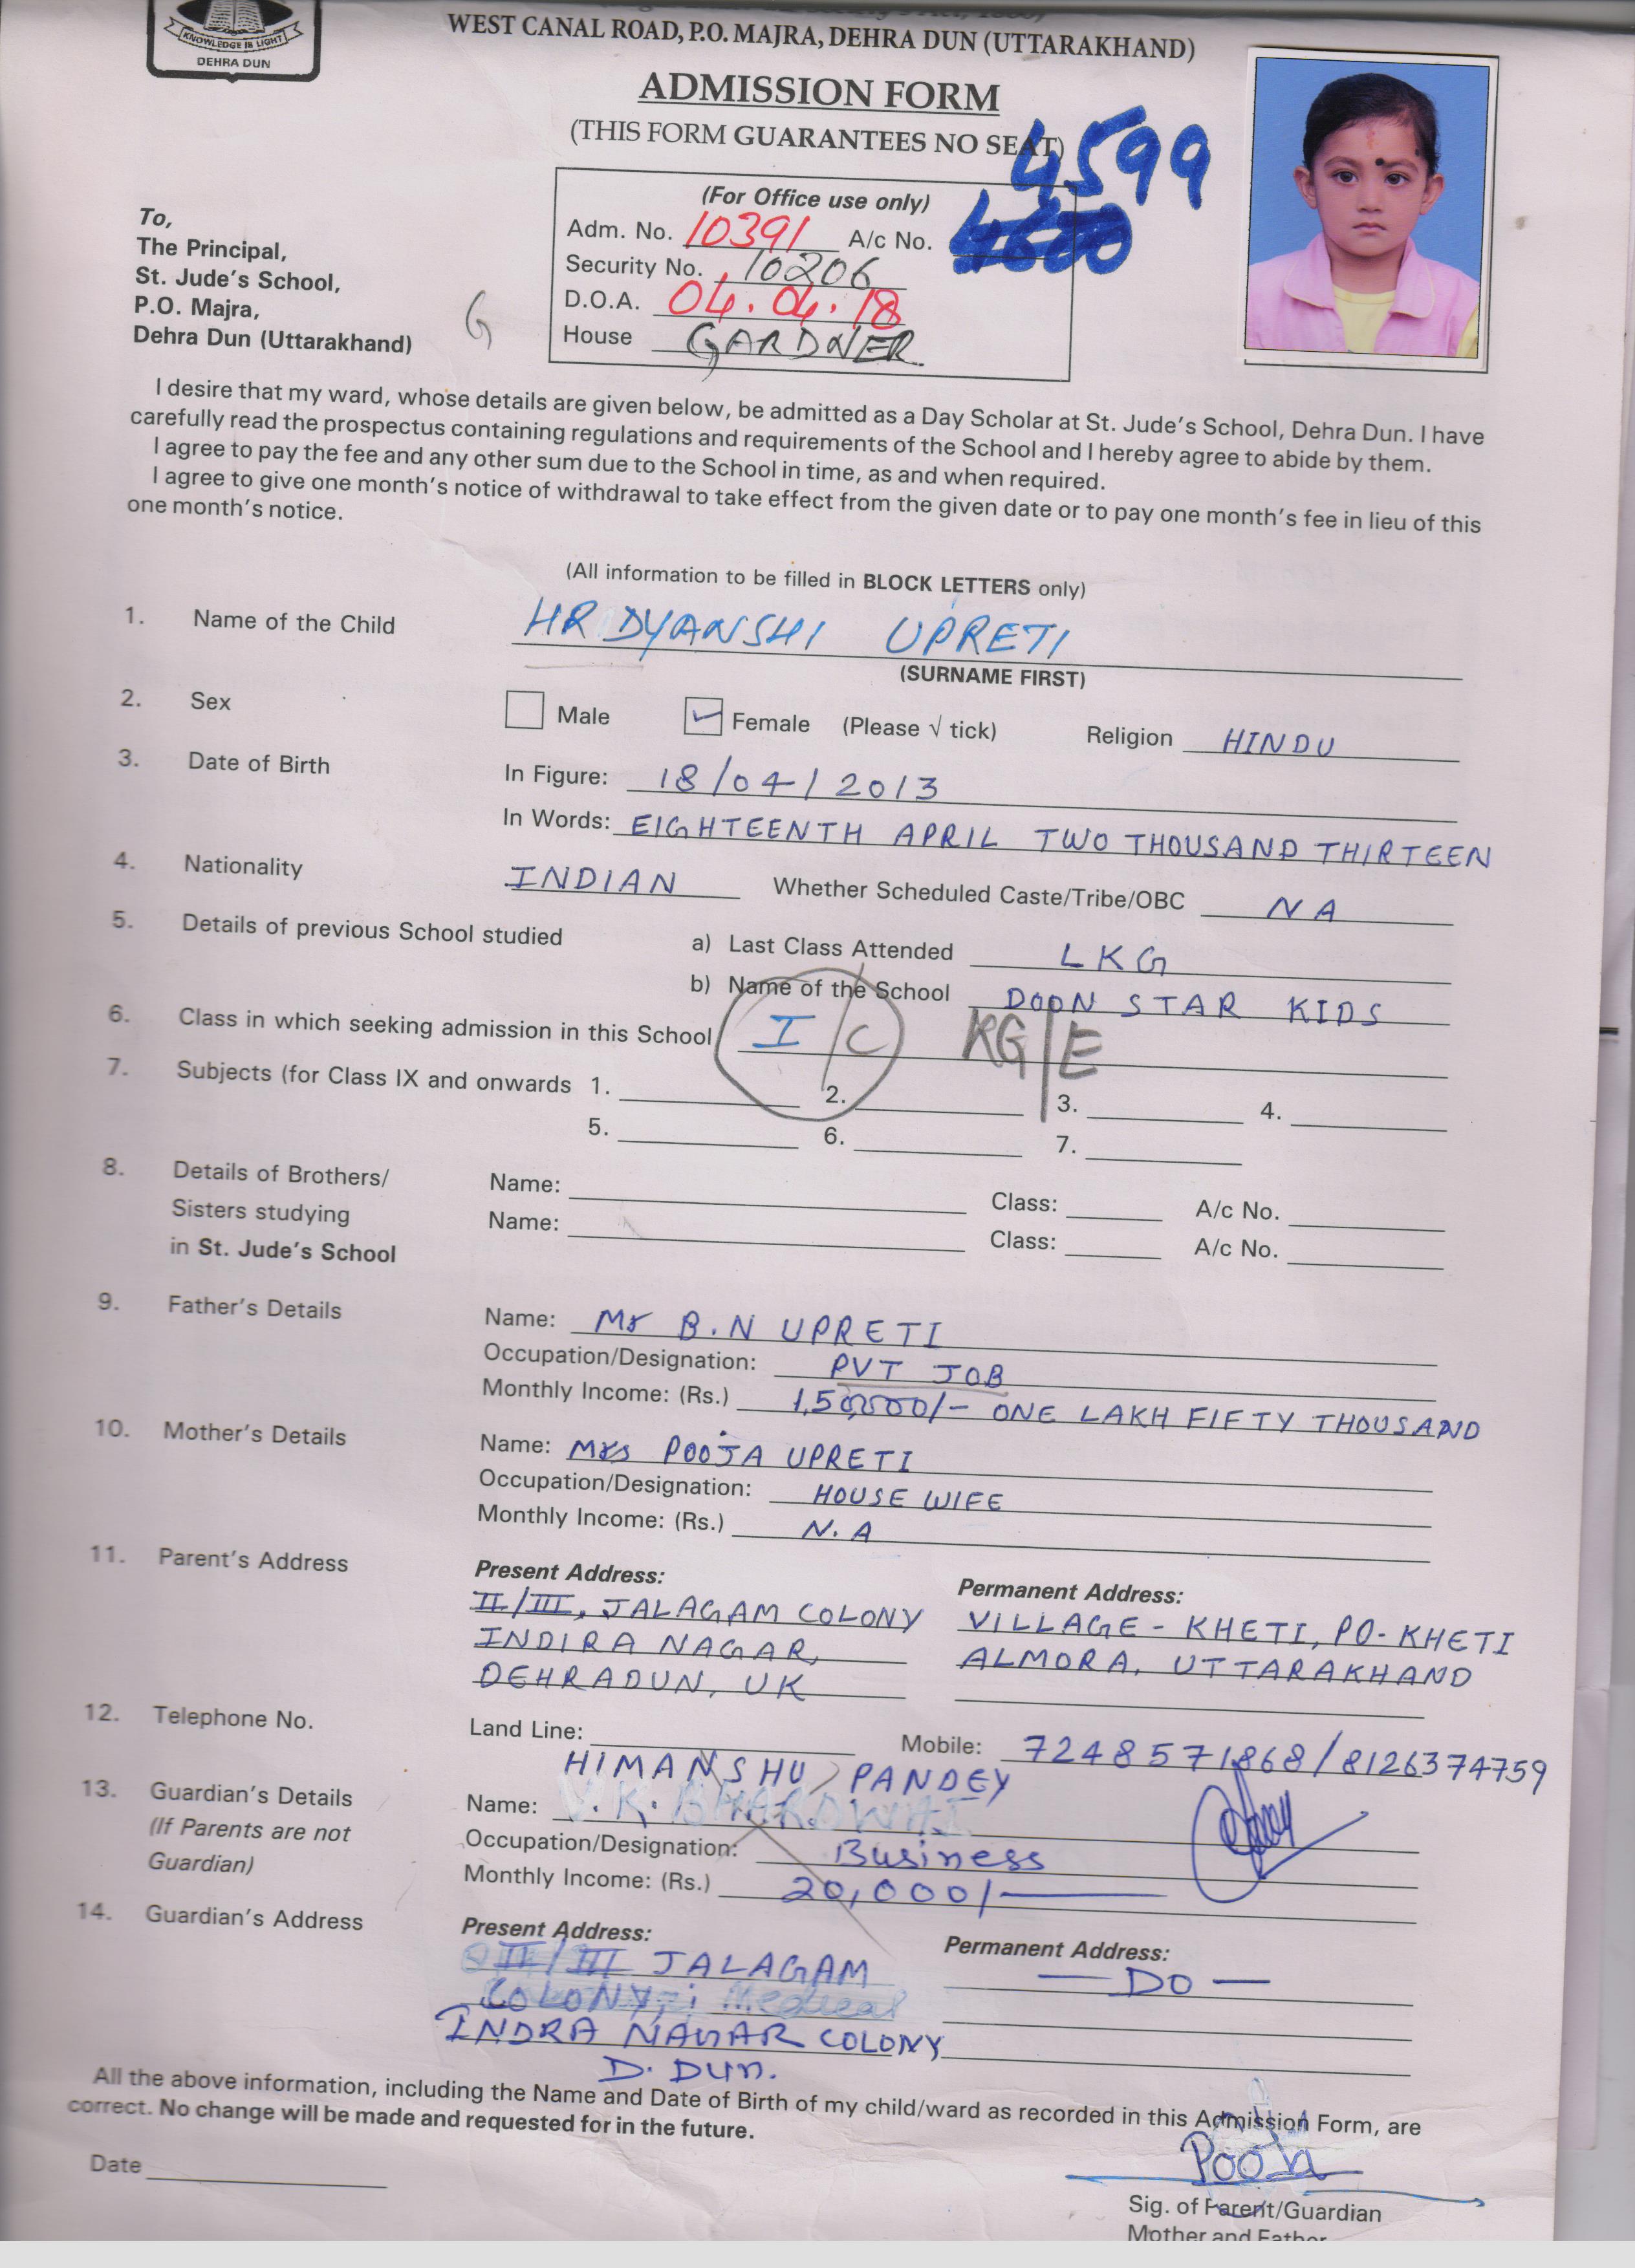 KNOWLEDGE IS LIGHT
DEHRA DUN
WEST CANAL ROAD, P.O. MAJRA, DEHRA DUN (UTTARAKHAND)
ADMISSION FORM
(THIS FORM GUARANTEES NO SEAT)
4599
(For Office use only)
Adm. No. 10391 A/c No. 4600
Security No. 10206
D.O.A. 04.04.18
House GARDNER
To,
The Principal,
St. Jude's School,
P.O. Majra,
Dehra Dun (Uttarakhand)
G
I desire that my ward, whose details are given below, be admitted as a Day Scholar at St. Jude's School, Dehra Dun. I have
carefully read the prospectus containing regulations and requirements of the School and I hereby agree to abide by them.
I agree to pay the fee and any other sum due to the School in time, as and when required.
I agree to give one month's notice of withdrawal to take effect from the given date or to pay one month's fee in lieu of this
one month's notice.
(All information to be filled in BLOCK LETTERS only)
1. Name of the Child HRDYANSHI UPRETI
(SURNAME FIRST)
2. Sex Male Female (Please √ tick) Religion HINDU
3. Date of Birth In Figure: 18/04/2013
In Words: EIGHTEENTH APRIL TWO THOUSAND THIRTEEN
4. Nationality INDIAN Whether Scheduled Caste/Tribe/OBC NA
5. Details of previous School studied a) Last Class Attended LKG
b) Name of the School DOON STAR KIDS
6. Class in which seeking admission in this School I/C KG/E
7. Subjects (for Class IX and onwards 1. 2. 3. 4.
5. 6. 7.
8. Details of Brothers/ Name: Class: A/c No.
Sisters studying Name: Class: A/c No.
in St. Jude's School
9. Father's Details Name: Mr B.N UPRETI
Occupation/Designation: PVT JOB
Monthly Income: (Rs.) 1,50,000/- ONE LAKH FIFTY THOUSAND
10. Mother's Details Name: Mrs POOJA UPRETI
Occupation/Designation: HOUSE WIFE
Monthly Income: (Rs.) N.A
11. Parent's Address Present Address: Permanent Address:
II/III, JALAGAM COLONY VILLAGE - KHETI, PO- KHETI
INDIRA NAGAR, ALMORA, UTTARAKHAND
DEHRADUN, UK
12. Telephone No. Land Line: Mobile: 7248571868/8126374759
HIMANSHU PANDEY
13. Guardian's Details Name: V.K. BHARDWAJ
(If Parents are not Occupation/Designation: Business
Guardian) Monthly Income: (Rs.) 20,000/-
14. Guardian's Address Present Address: Permanent Address:
II/III JALAGAM — DO —
COLONY, Medical
INDRA NAGAR COLONY
D. Dun.
All the above information, including the Name and Date of Birth of my child/ward as recorded in this Admission Form, are
correct. No change will be made and requested for in the future.
Pooja
Date
Sig. of Parent/Guardian
Mother and Father